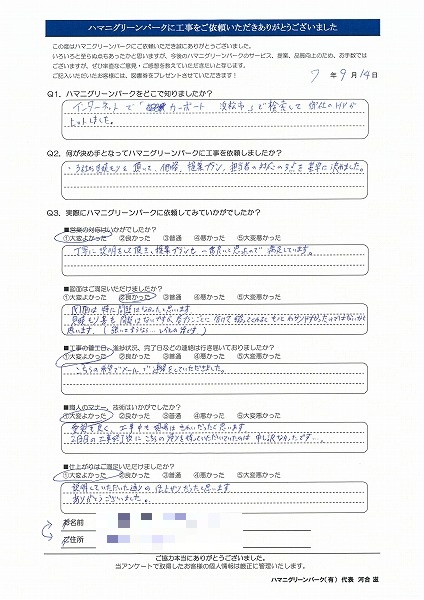 ハマニグリーンパークに工事をご依頼いただきありがとうございました
この度はハマニグリーンパークにご依頼いただき誠にありがとうございました。
いろいろと至らぬ点もあったかと思いますが、今後のハマニグリーンパークのサービス、提案、品質向上のため、お手数では
ございますが、ぜひ率直なご意見・ご感想を教えていただきたいと存じます。
ご記入いただいたお客様には、図書券をプレゼントさせていただきます！
7 年 9 月 14 日
Q1. ハマニグリーンパークをどこで知りましたか？
インターネットで「カーポート 浜松市」で検索して 御社のHPが
ヒットしました。
Q2. 何が決め手となってハマニグリーンパークに工事を依頼しましたか？
・3社お見積もりを頂いて、価格、提案プラン、担当者の対応の3点を基準に決めました。
Q3. 実際にハマニグリーンパークに依頼してみていかがでしたか？
■営業の対応はいかがでしたか？
①大変よかった ②良かった ③普通 ④悪かった ⑤大変悪かった
丁寧に説明をして頂き、提案プランも一番良いと思えたので満足しています。
■図面はご満足いただけましたか？
①大変よかった ②良かった ③普通 ④悪かった ⑤大変悪かった
図面は特に問題はなかったと思います
思います。
■工事の着工日、進捗状況、完了日などの連絡は行き届いておりましたか？
①大変よかった ②良かった ③普通 ④悪かった ⑤大変悪かった
・こちらの希望でメールで連絡をしていただきました。
■職人のマナー、技術はいかがでしたか？
①大変よかった ②良かった ③普通 ④悪かった ⑤大変悪かった
愛想も良く、工事中も現場はきれいだったと思います
2日目の工事終了後に
■仕上がりはご満足いただけましたか？
①大変よかった ②良かった ③普通 ④悪かった ⑤大変悪かった
説明していただいた通りの仕上がりだったと思います
ありがとうございました。
お名前
ご住所
ご協力本当にありがとうございました。
当アンケートで取得したお客様の個人情報は厳正に管理いたします。
ハマニグリーンパーク(有) 代表 河合 滋